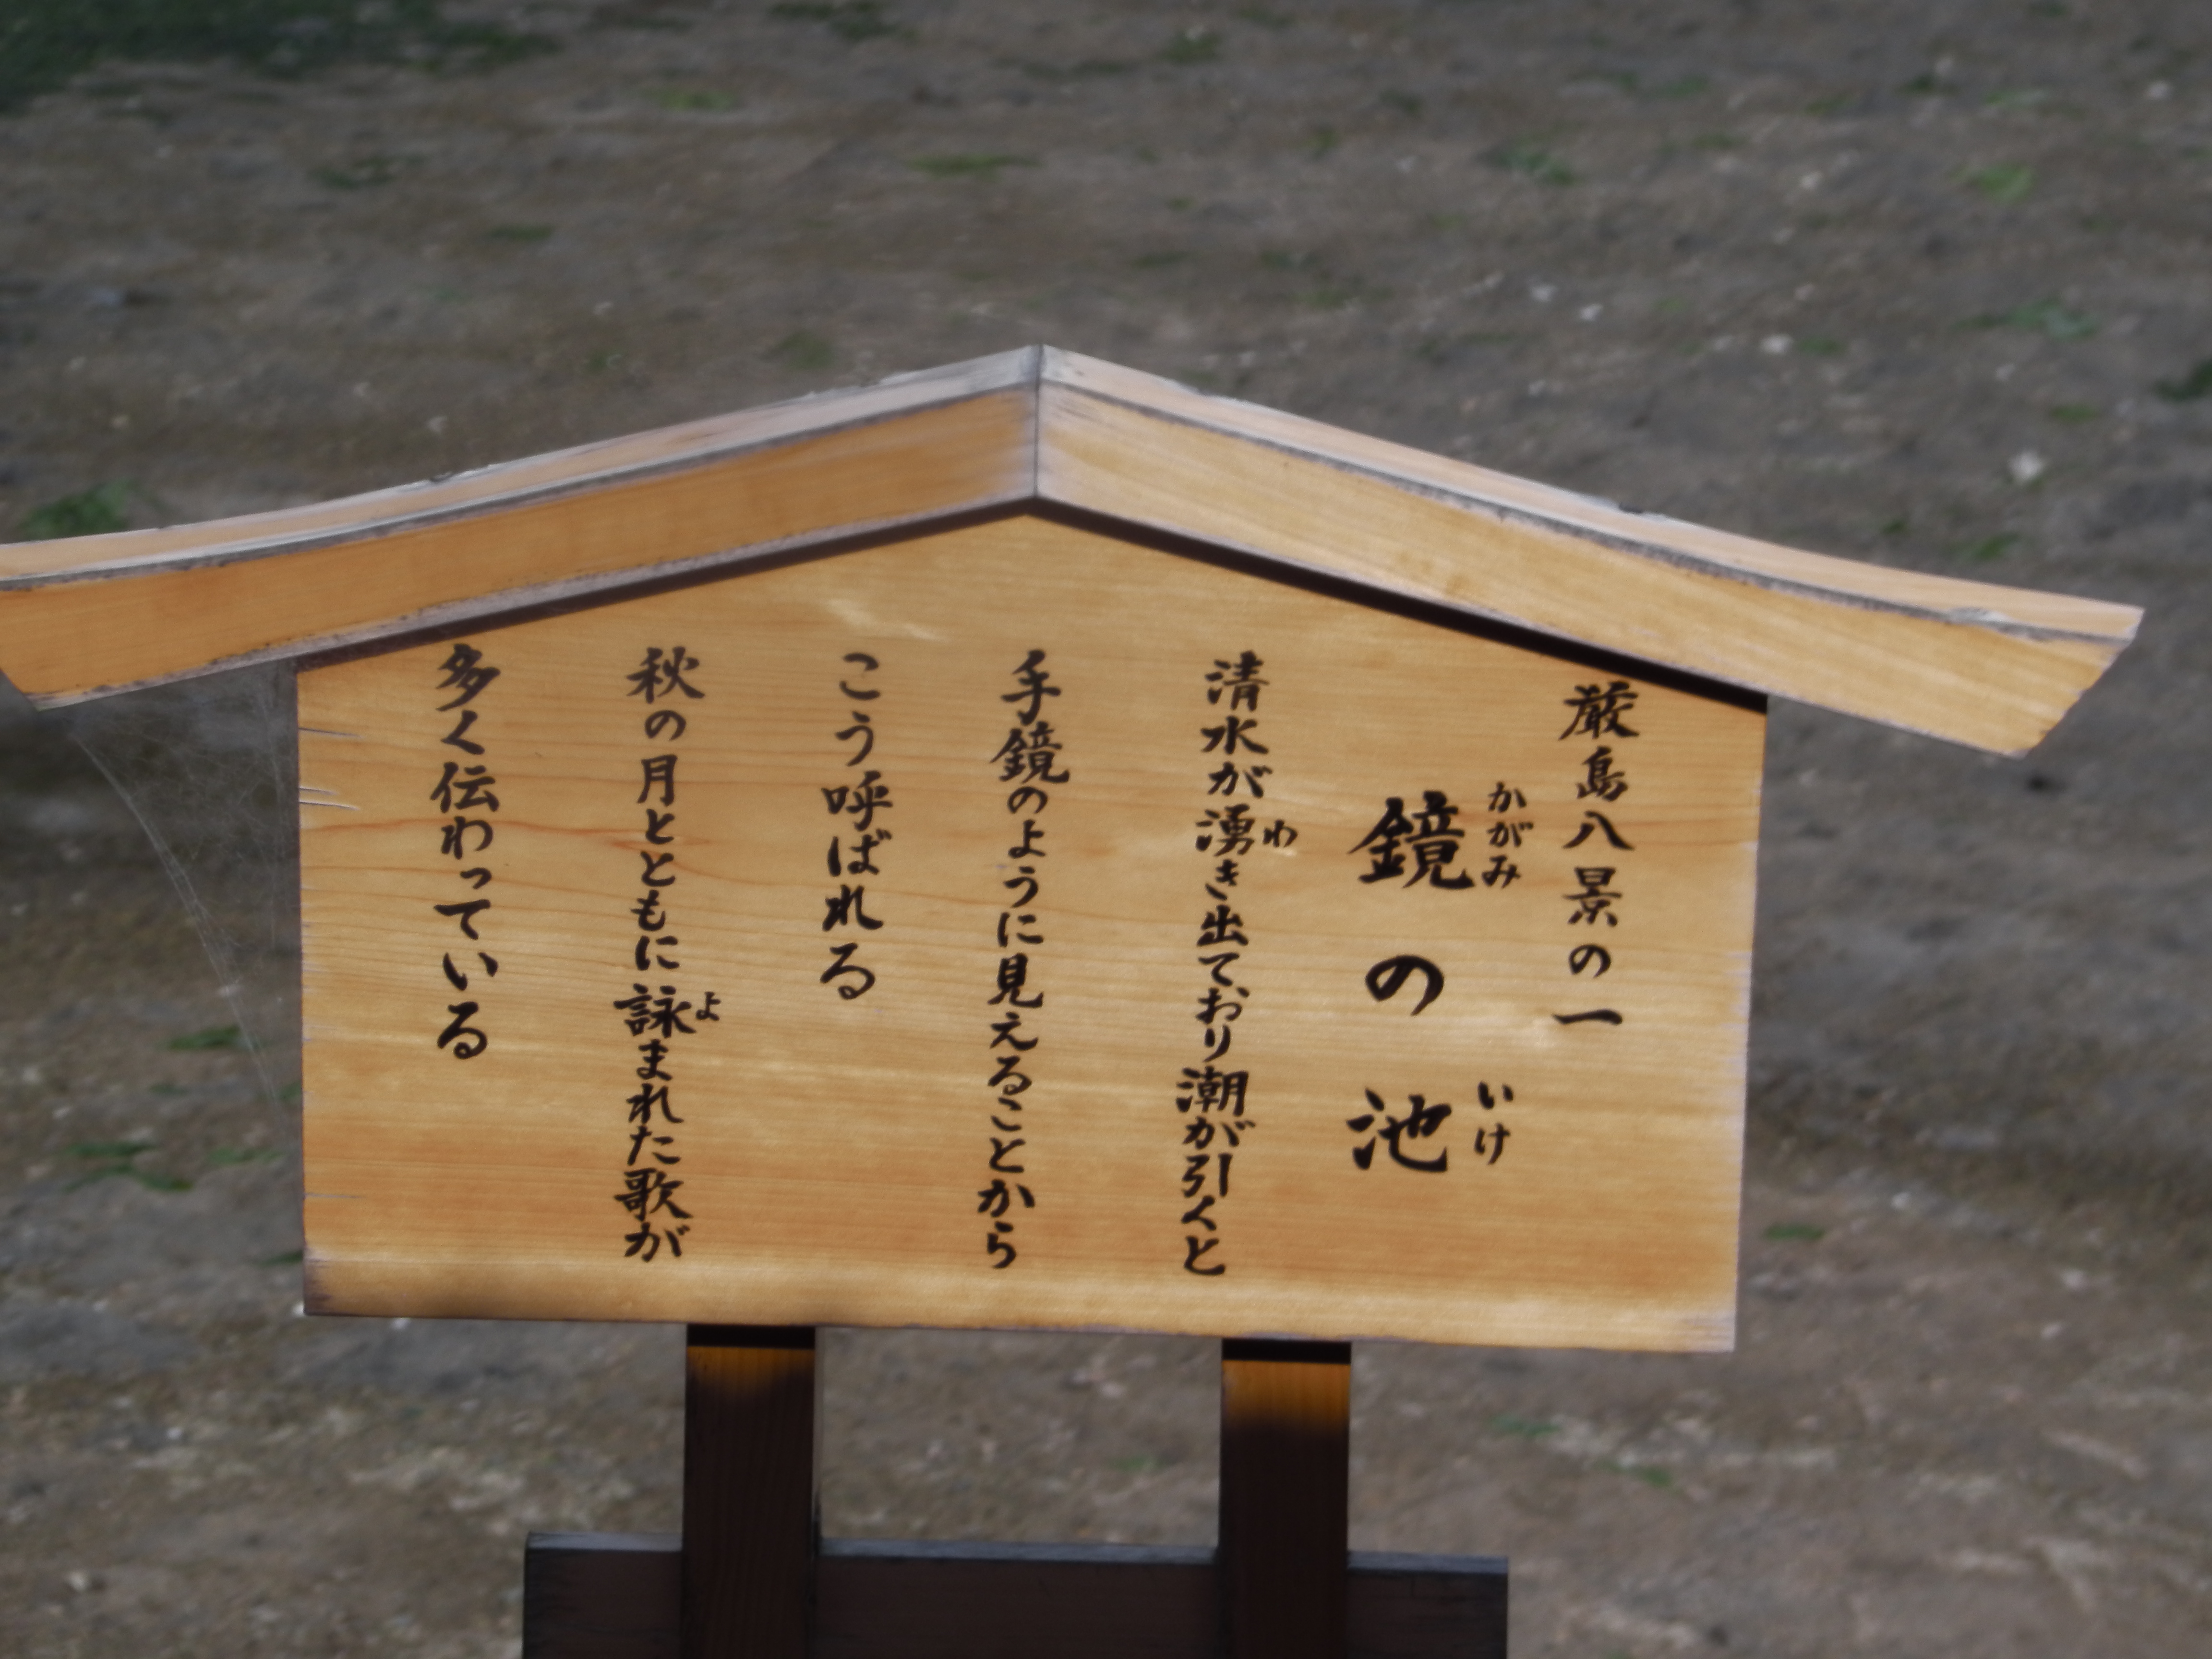 厳島八景の一
鏡の池
かがみ いけ
清水が湧き出ており潮が引くと
わ
手鏡のように見えることから
こう呼ばれる
秋の月とともに詠まれた歌が
よ
多く伝わっている